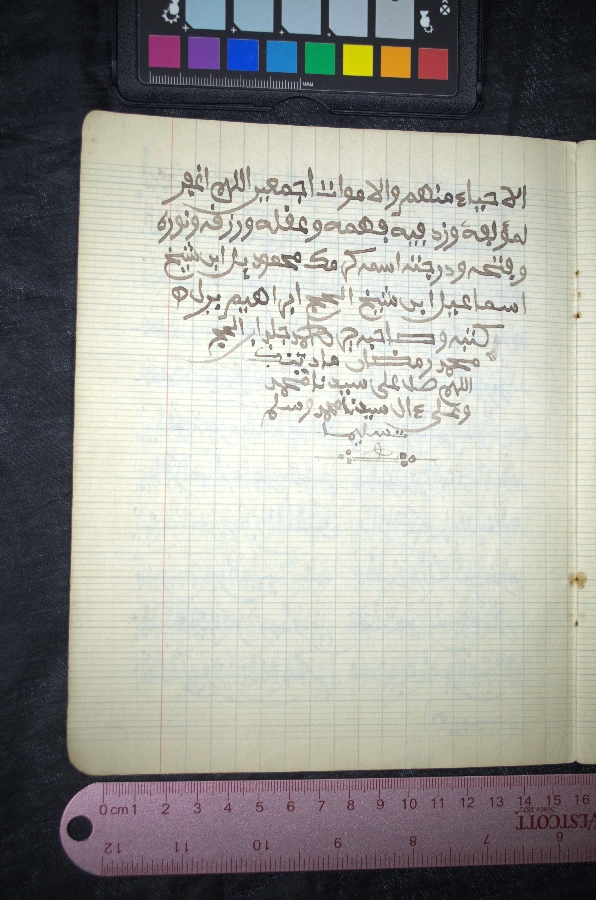 الاحياء منهم والاموات اجمعين اللهم اغفر
لمؤلفه وزد فيه فهمه وعقله ورزقه ونوره
وفتحه ودرجته اسمه محمود بل ابن شيخ
اسماعيل ابن شيخ الحج ابراهيم
كتبه وصاحبه محمد ابن الحج
محمد رمضان
اللهم صل على سيدنا محمد
وعلى ءال سيدنا محمد وسلم
تسليما
0 cm 1 2 3 4 5 6 7 8 9 10 11 12 13 14 15 16
WESTCOTT
12 11 10 9 8 7 6